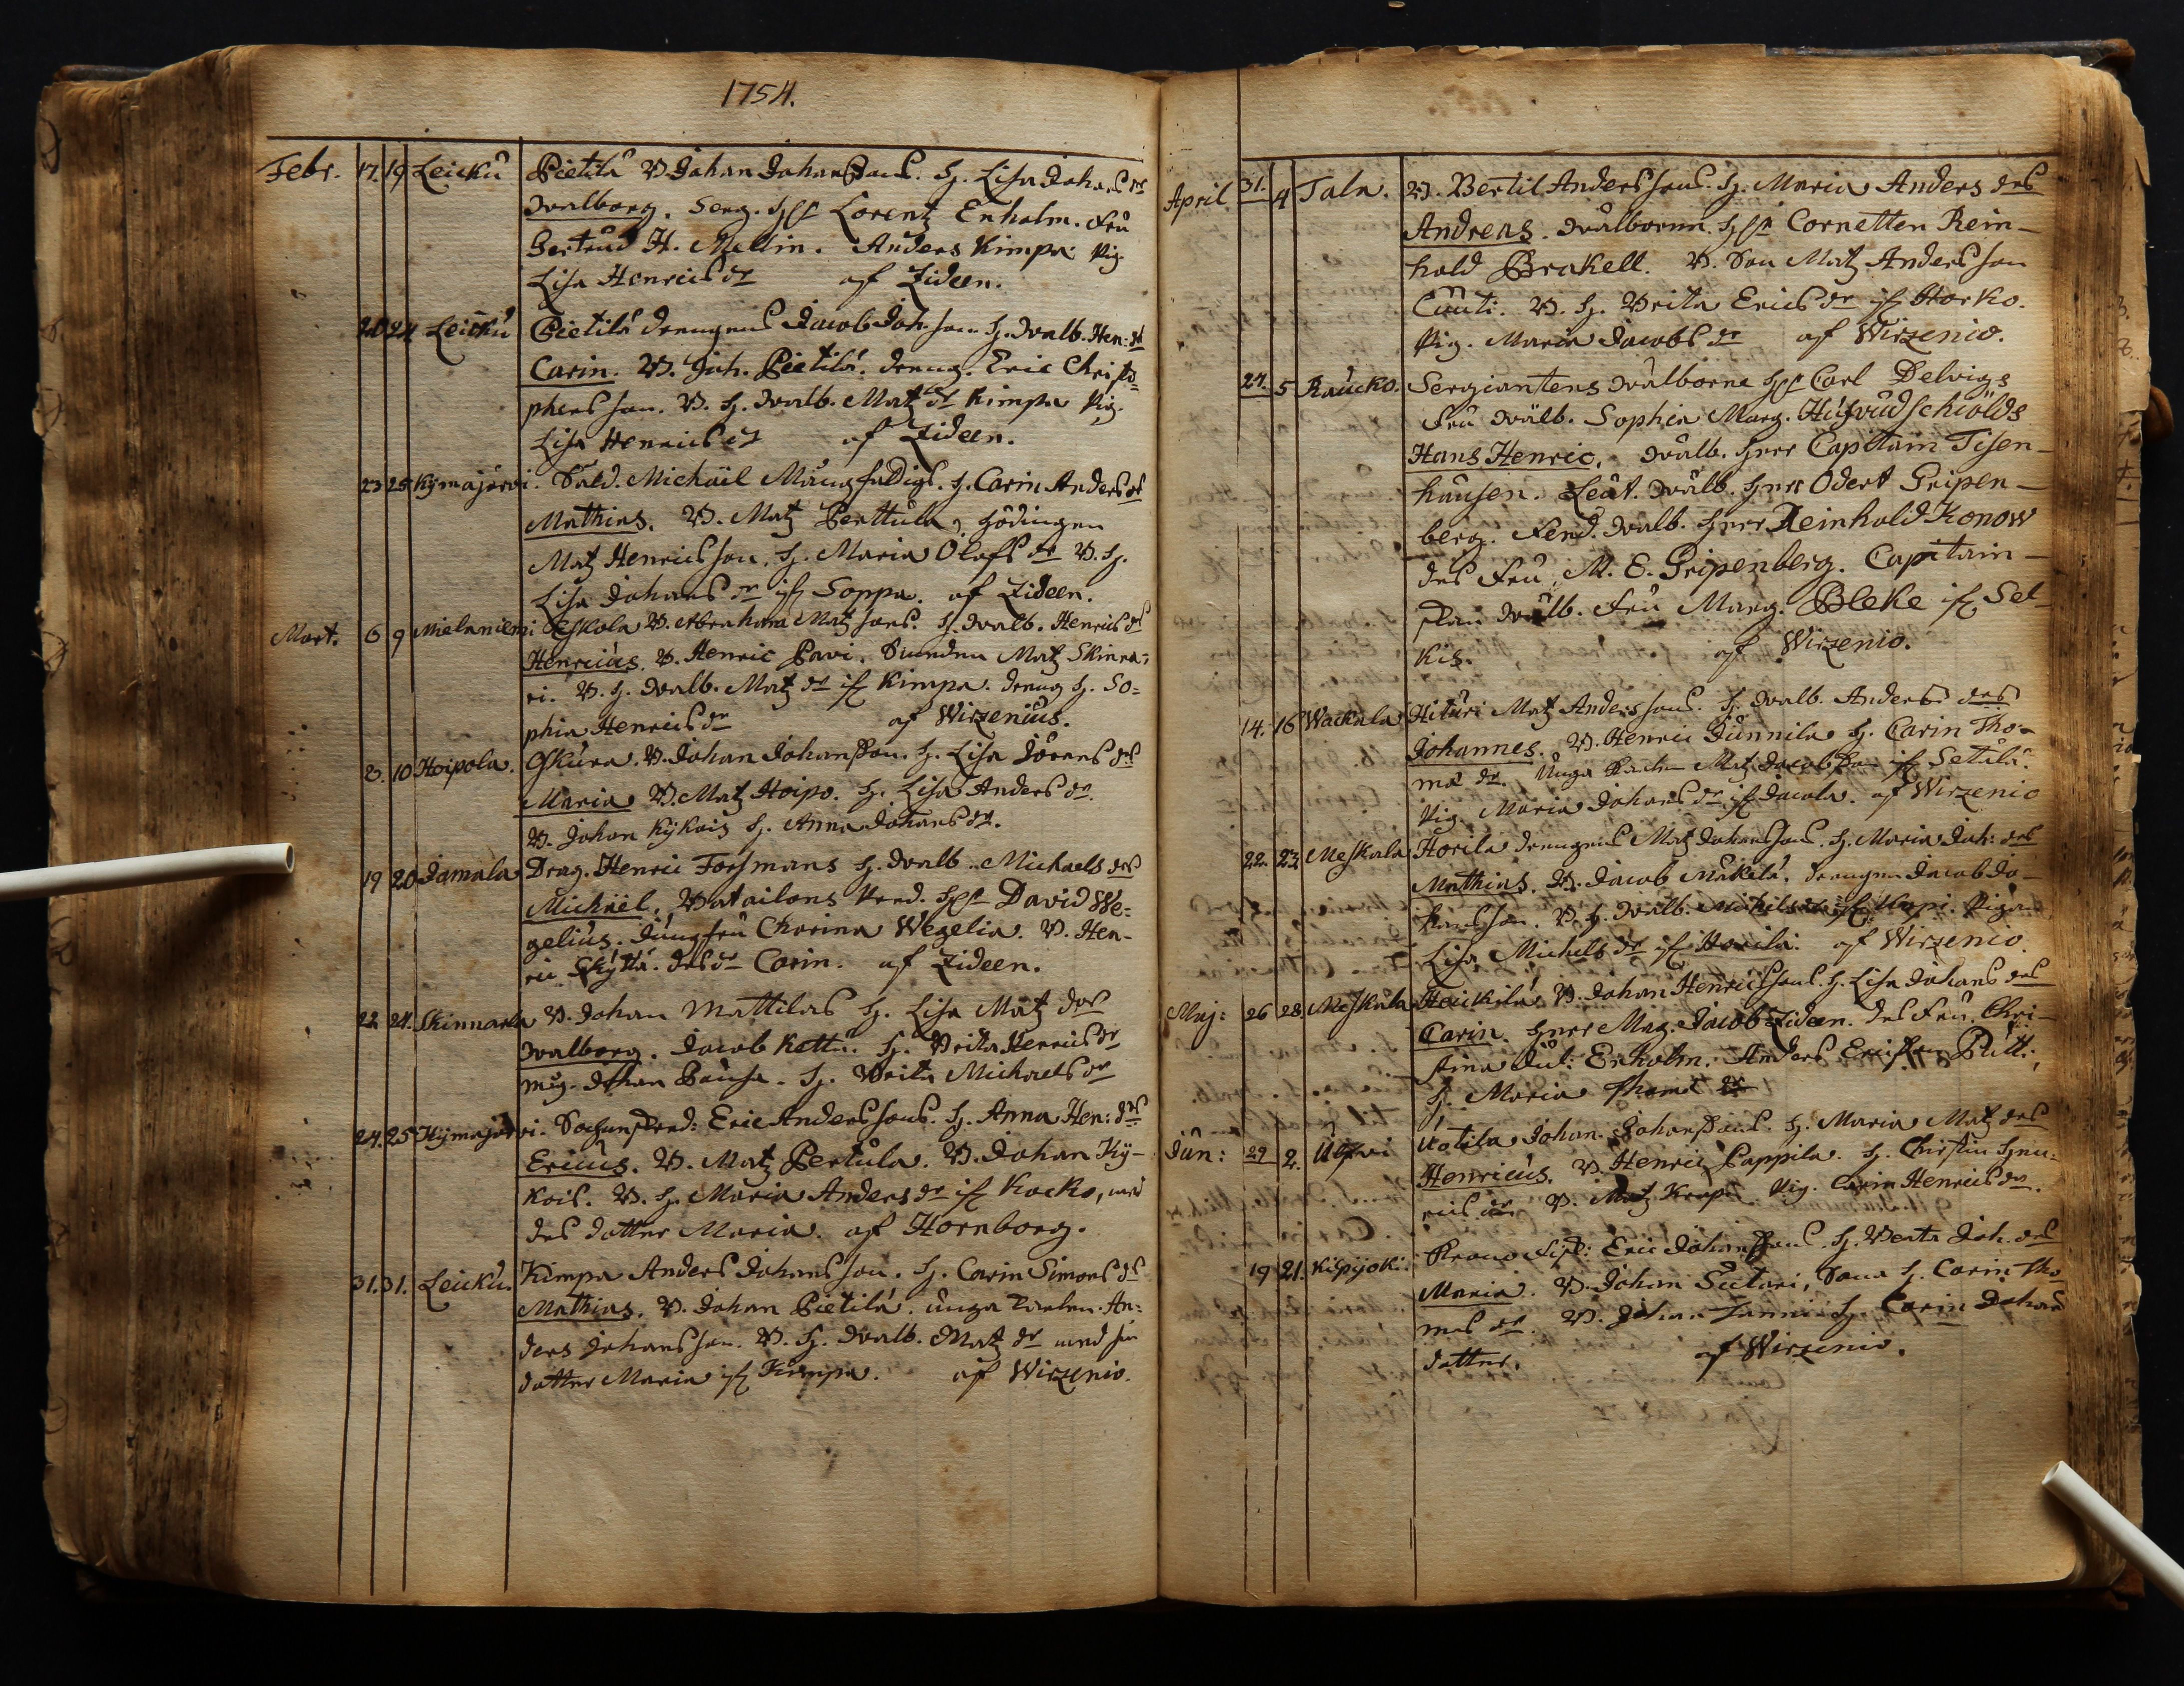 1754.
Febr. 17. 19 Leickù Pietilä B. Johan Johanssons. H. Lisa Johans dr
Walborg. Serg. Hr Lorentz Enholm. Fru
Gertrud H. Mellin. Anders Kimpa Pig.
Lisa Henrics dr af Zideen.
20 24 Leickù Pietilä drengens Jacob Joh. sons H. Walb. Hen: dr
Carin. B. Joh. Pietilä. dreng. Eric Christo=
phers son. B. H. Walb. Matz dr Kimpa Pig.
Lisa Henrics dr af Zideen.
23 25 Kymajärvi. Sold. Michäil Mångfaldigs. H. Carin Anders dr
Mathias. B. Matz Perttula,
Matz Henrics son, H. Maria Olofs dr B. H.
Lisa Johans dr if Soppa. af Zideen.
Mart. 6 9 Mielaniemi. Eskola B. Abraham Matz sons. H. Walb. Henrics dr
Henricùs. B. Henric Pavi. Matz Skinna=
ri. B. H. Walb. Matz dr if Kimpa. dreng H. So=
phia Henrics dr af Wirzeniùs.
8. 10 Hoipola. B. Johan Johansson. H. Lisa Jörans dr
Maria B. Matz Hoipo. H. Lisa Anders dr.
B. Johan Kykois H. Anna Johans dr.
19 20 Jamala Drag. Henric Forsmans H. Walb. Michaels dr
Michäel. Batailons Pred. Hr David We=
gelius. Jungfru Chorina Wegelia. B. Hen-
ric Skyttä. des dr Carin. af Zideen.
22 24. Skinnarla B. Johan Mattilas H. Lisa Matz dr
Walborg. Jacob Kettù. H. Brita Henrics dr
Johan Pausa. H. Brita Michaels dr
24. 25 Kymajärvi. Eric Anders sons. H. Anna Hen: dr
Ericùs. B. Matz Pertùla. B. Johan Ky-
kois. B. H. Maria Anders dr if Kocko, med
des dotter Maria. af Hornborg.
31. 31. Leickù. Kimpa Anders Johans son. H. Carin Simons dr
Mathias. B. Johan Pietilä. ùnga Karlen. An:
ders Johans son. B. H. Walb. Matz dr med sin
dotter Maria if Kimpa. af Wirzenio.
April 31. 4 Tala. B. Bertil Anders sons. H. Maria Anders drs
Andreas. Wälborne. Hr Cornetten Rein-
hold Brakell. B. Son Matz Anders son
Cùùti. B. H. Brita Erics dr if Horko.
Pig. Maria Jacobs dr af Wirzenio.
27. 5 Raùcko. Sergiantens Wälborne Hr Carl Delvigs
Frù Wälb. Sophia Marg. Hùfvùdschiölds
Hans Henric. Wälb. Herr Capitain Tisen-
haùsen. Leùt. Wälb. Herr Odert Gripen-
berg. Fend. Wälb. Herr Reinhold Konow
des Frù, M. E. Gripenberg. Capitain-
skan Wälb. Frù Marg. Bleke if Sel-
kis. af Wirzenio.
14. 16 Wackala Hitùri Matz Anders sons. H. Walb. Anders drs
Johannes. B. Henric Jùnnila H. Carin Tho=
mæ dr. ùnga Karlen Matz Jacobsson if Setälä.
Pig. Maria Johans dr if Jacola. af Wirzenio
22. 23 Meskala Horila drengens Matz Johanssons. H. Maria Joh: drs
Mathias. B. Jacob Mäkelä. drengen Jacob Jo-
hans son. B. H. Walb. Michels dr if Pigan
Lisa Michels dr if Horila. af Wirzenio.
Maj: 26 28 Meskala Heickilä B. Johan Henrics sons. H. Lisa Johans drs
Carin. Herr Mag. Jacob Zideen. des Frù, Chri-
stina Enholm. Anders Ericsson Pùtti,
H. Maria Thomæ dr
Jùn: 29 2. Uotila Johan Johanssons. H. Maria Matz drs
Henricùs. B. Henric Pappila. H. Christin Hen:
rics dr B. Matz Pig. Carin Henrics dr.
19 21. Kilpijoki. Eric Johanssons. H. Berta Joh. drs
Maria. B. Johan Sùtari, H. Carin Tho
mæ dr. B. Johan H. Carin Johans
dotter. af Wirzenio.